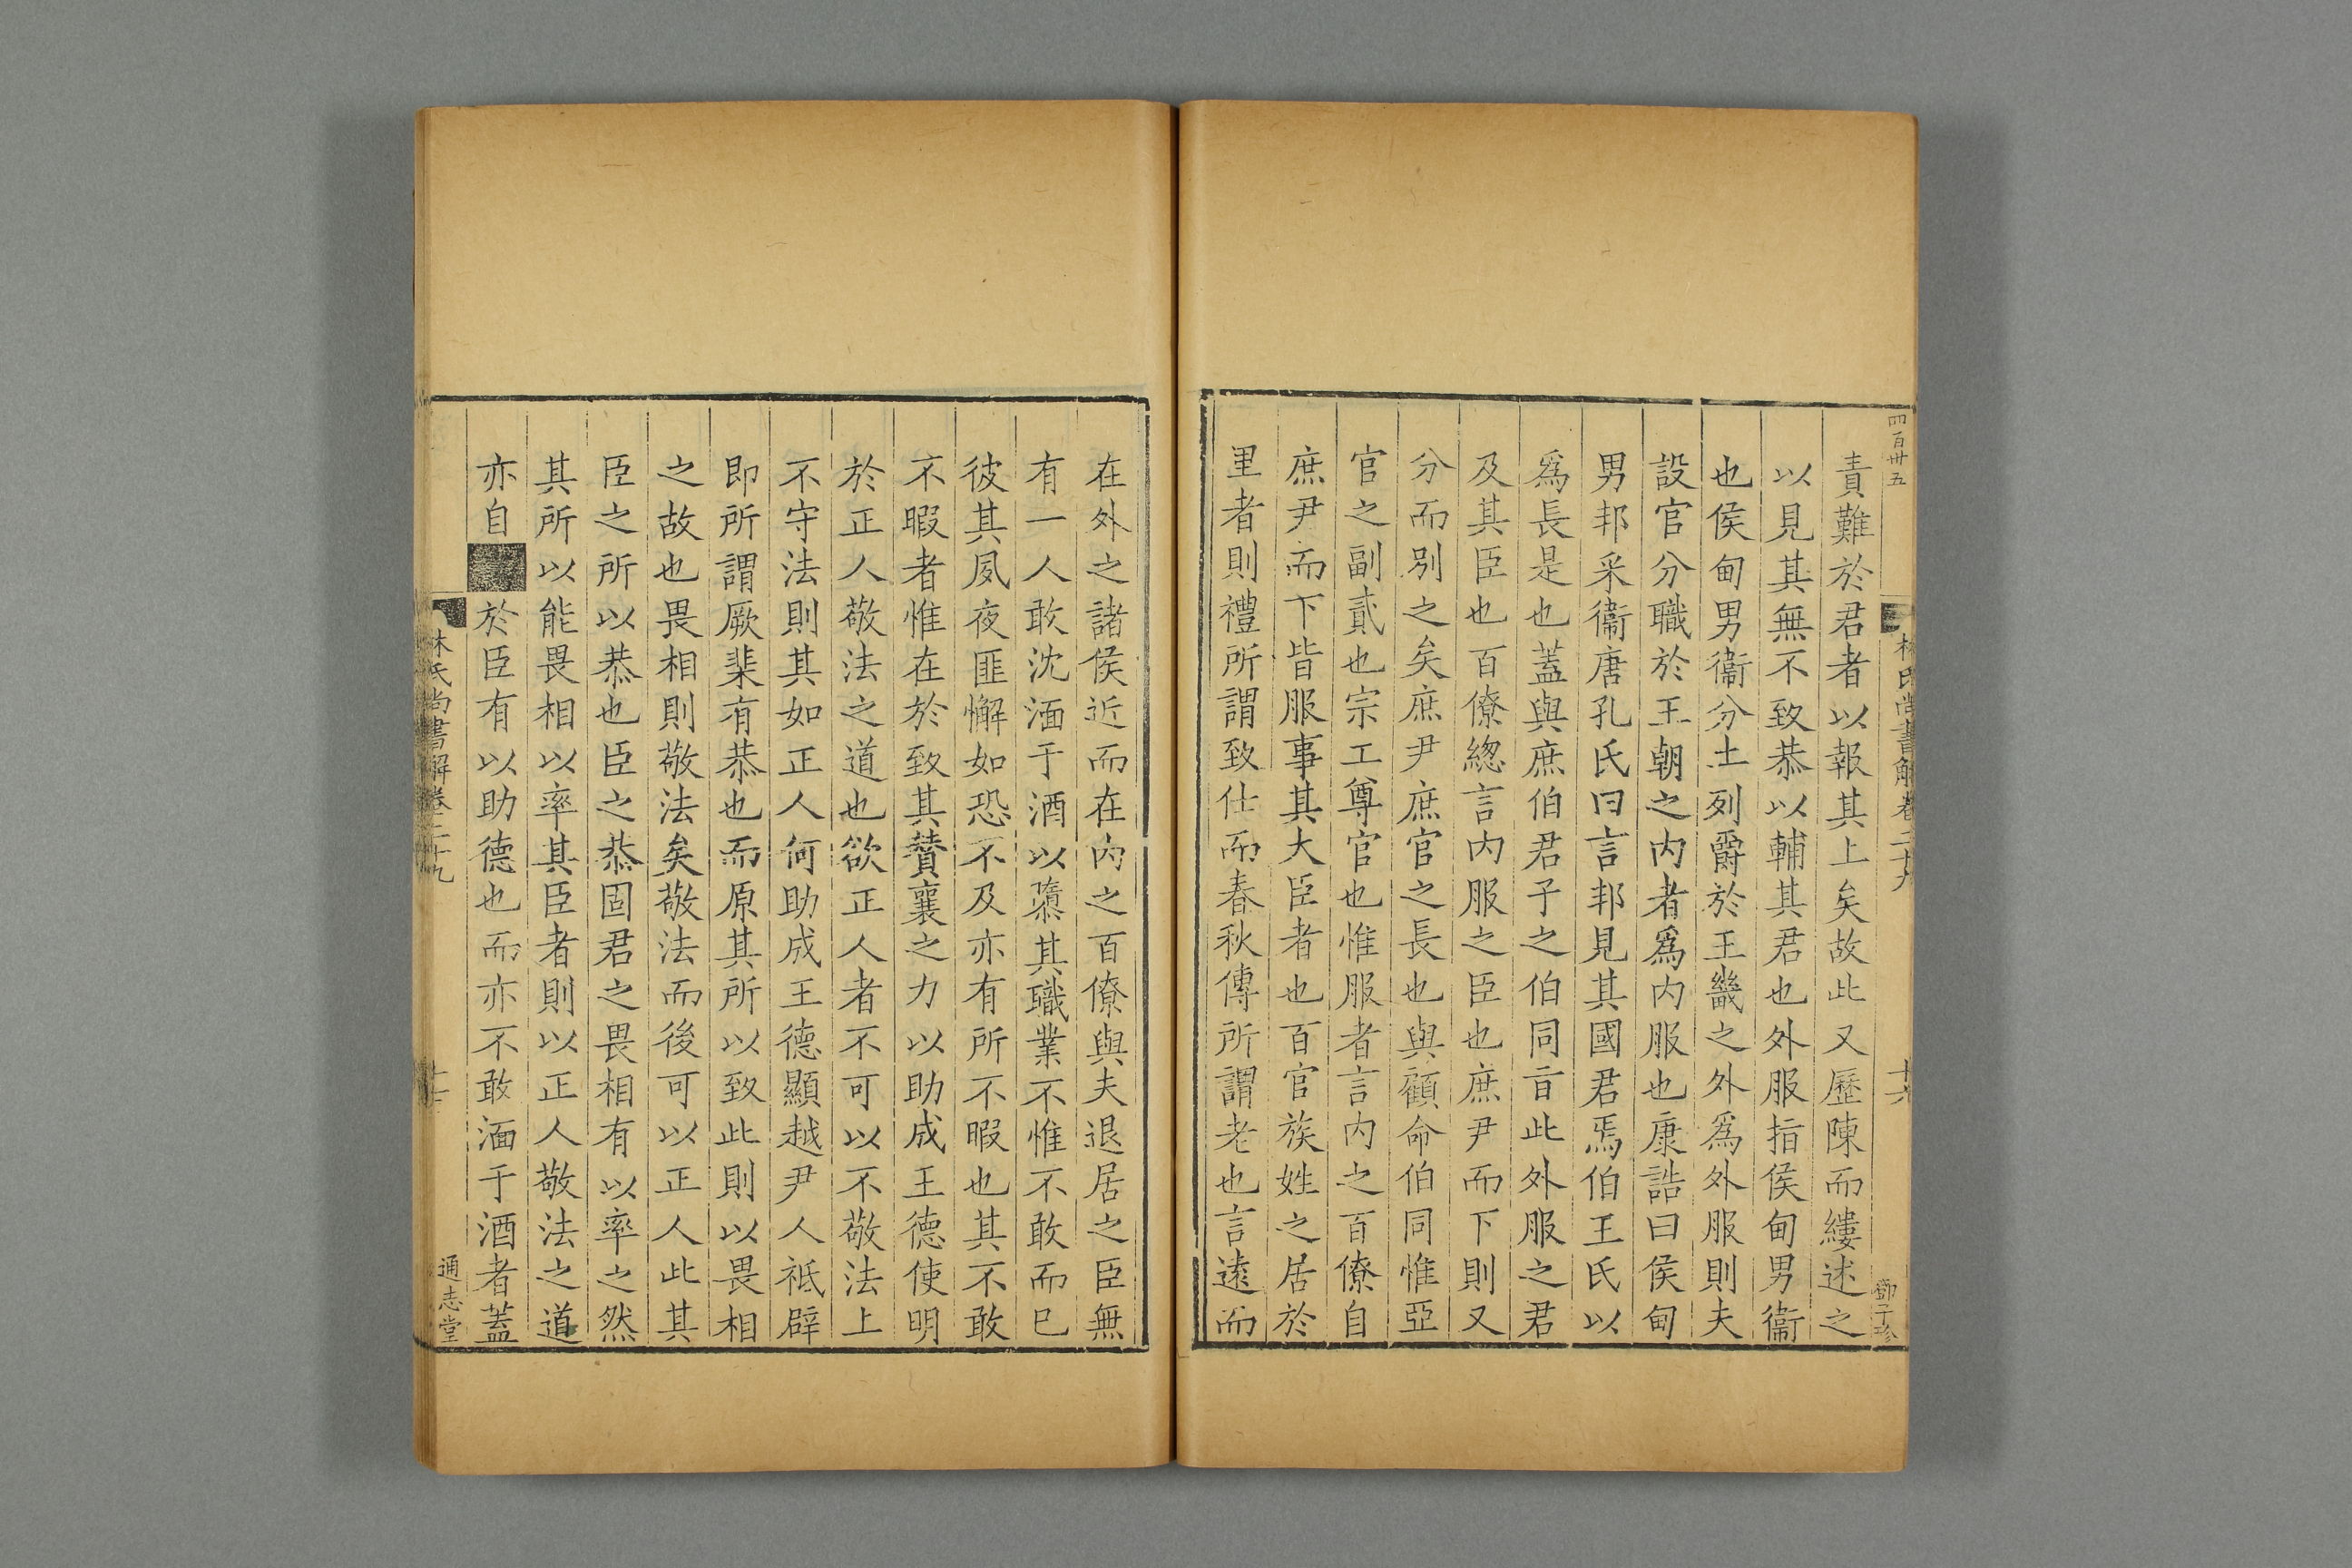 四百卅五
林氏尚書解卷二十九
十六
鄧子珍
責難於君者以報其上矣故此又歷陳而縷述之
以見其無不致恭以輔其君也外服指侯甸男衞
也侯甸男衞分土列爵於王畿之外爲外服則夫
設官分職於王朝之内者爲内服也康誥曰侯甸
男邦采衞唐孔氏曰言邦見其國君焉伯王氏以
爲長是也蓋與庶伯君子之伯同言此外服之君
及其臣也百僚緫言内服之臣也庶尹而下則又
分而别之矣庶尹庶官之長也與顧命伯同惟亞
官之副貳也宗工尊官也惟服者言内之百僚自
庶尹而下皆服事其大臣者也百官族姓之居於
里者則禮所謂致仕而春秋傳所謂老也言遠而
在外之諸侯近而在内之百僚與夫退居之臣無
有一人敢沈湎于酒以隳其職業不惟不敢而已
彼其夙夜匪懈如恐不及亦有所不暇也其不敢
不暇者惟在於致其贊襄之力以助成王德使明
於正人敬法之道也欲正人者不可以不敬法上
不守法則其如正人何助成王德顯越尹人祗辟
即所謂厥棐有恭也而原其所以致此則以畏相
之故也畏相則敬法矣敬法而後可以正人此其
臣之所以恭也臣之恭固君之畏相有以率之然
其所以能畏相以率其臣者則以正人敬法之道
亦自於臣有以助德也而亦不敢湎于酒者蓋
林氏尚書解卷二十九
十七
通志堂